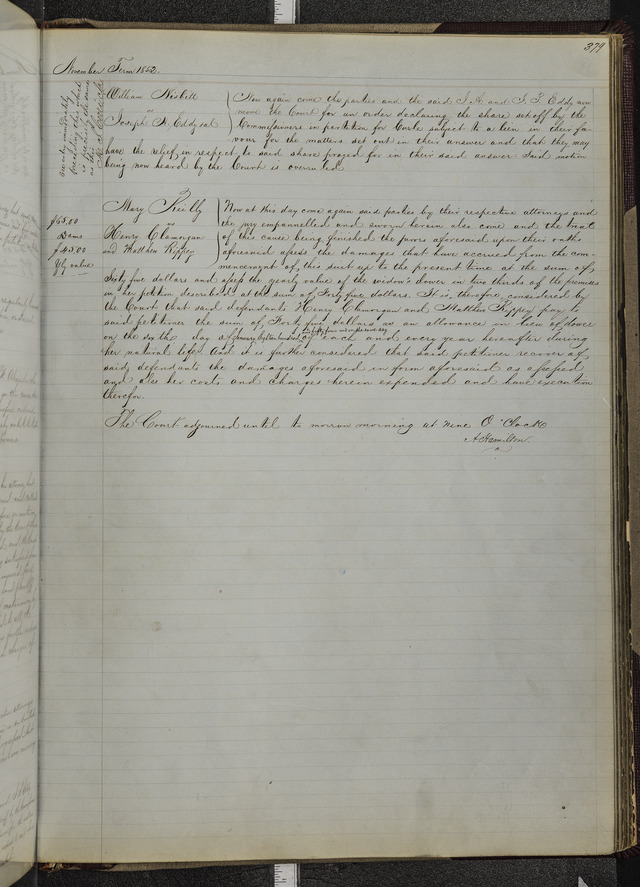 379
November Term 1852.
William Nisbett
vs
Joseph A. Eddy et al
Now again come the parties and the said J. A. and J. F. Eddy now
move the Court for an order declaring the share set off by the
Commissioners in partition for Curle subject to a lien in their fa-
vour for the matters set out in their answer and that they may
have the relief, in respect to said share prayed for in their said answer. Said motion
being now heard by the Court is overruled
$65.00
Dams
$45.00
Yly value
Mary Reilly
vs
Henry Clamorgan
and Matthew Rippey
Now at this day come again said parties by their respective attorneys and
the jury empannelled and sworn herein also come and the trial
of this cause being finished the jurors aforesaid upon their oaths
aforesaid assess the damages that have accrued from the com-
mencement of this suit up to the present time at the sum of
Sixty five dollars and assess the yearly value of the widow's dower in two thirds of the premises
in her petition described at the sum of Forty five dollars. It is therefore considered by
the Court that said defendants Henry Clamorgan and Matthew Rippey pay to
said petitioner the sum of Forty five dollars as an allowance in lieu of dower
on the day of January Eighteen hundred and fifty four and on the same day of each and every year hereafter during
her natural life. And it is further considered that said petitioner recover of
said defendants the damages aforesaid in form aforesaid as assessed
and also her costs and charges herein expended and have execution
therefor.
The Court adjourned until to morrow morning at nine O'Clock
A Hamilton